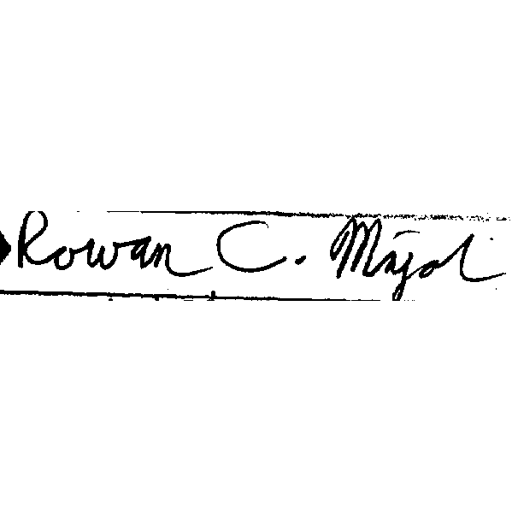 Rowan C. Major